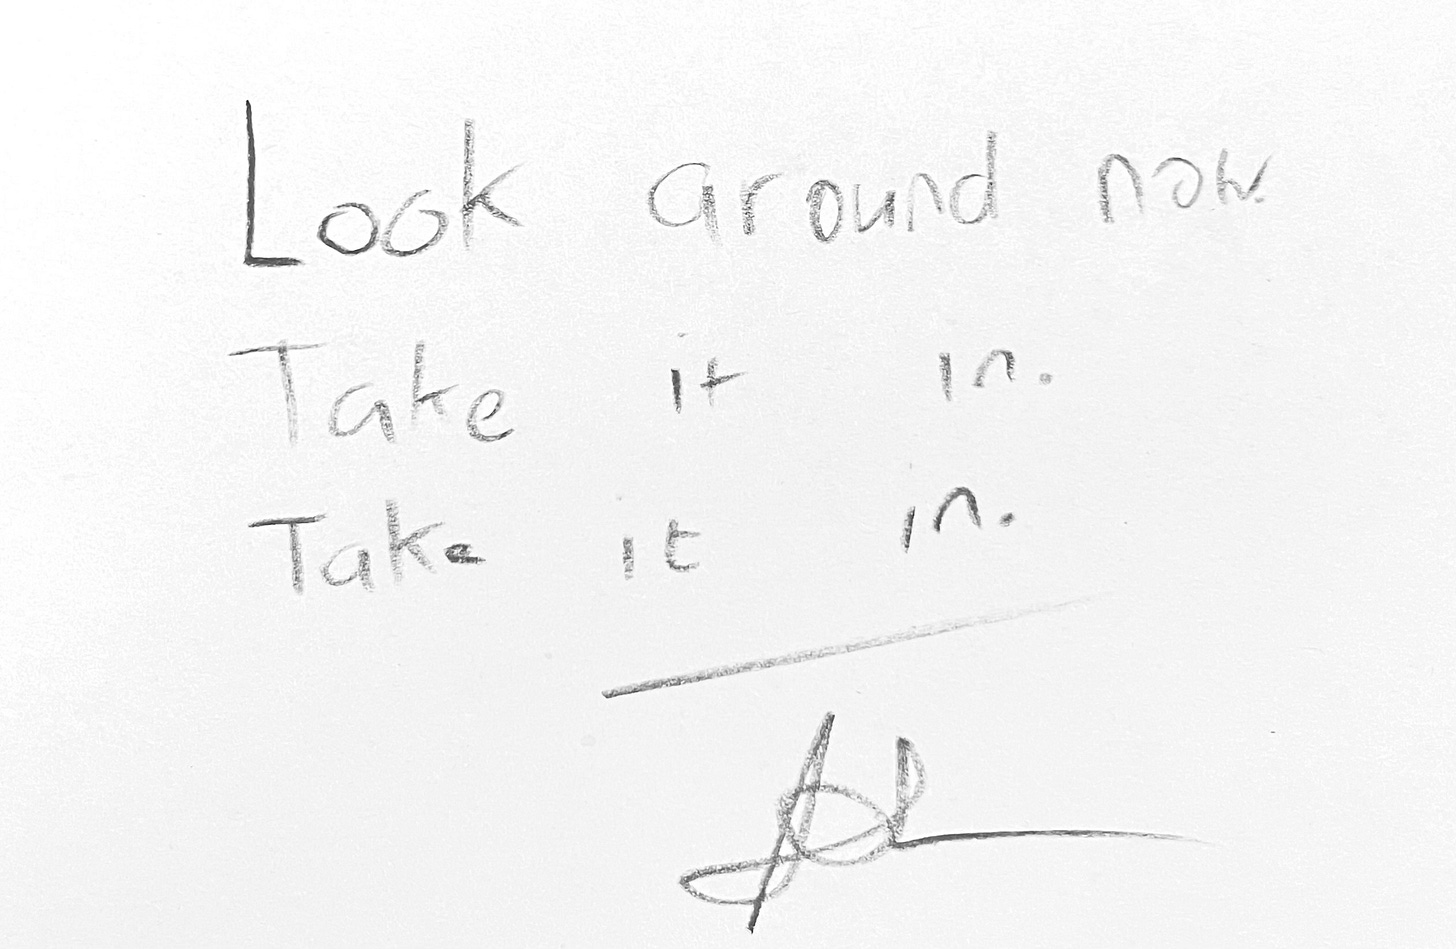 Look around now.
Take it in.
Take it in.